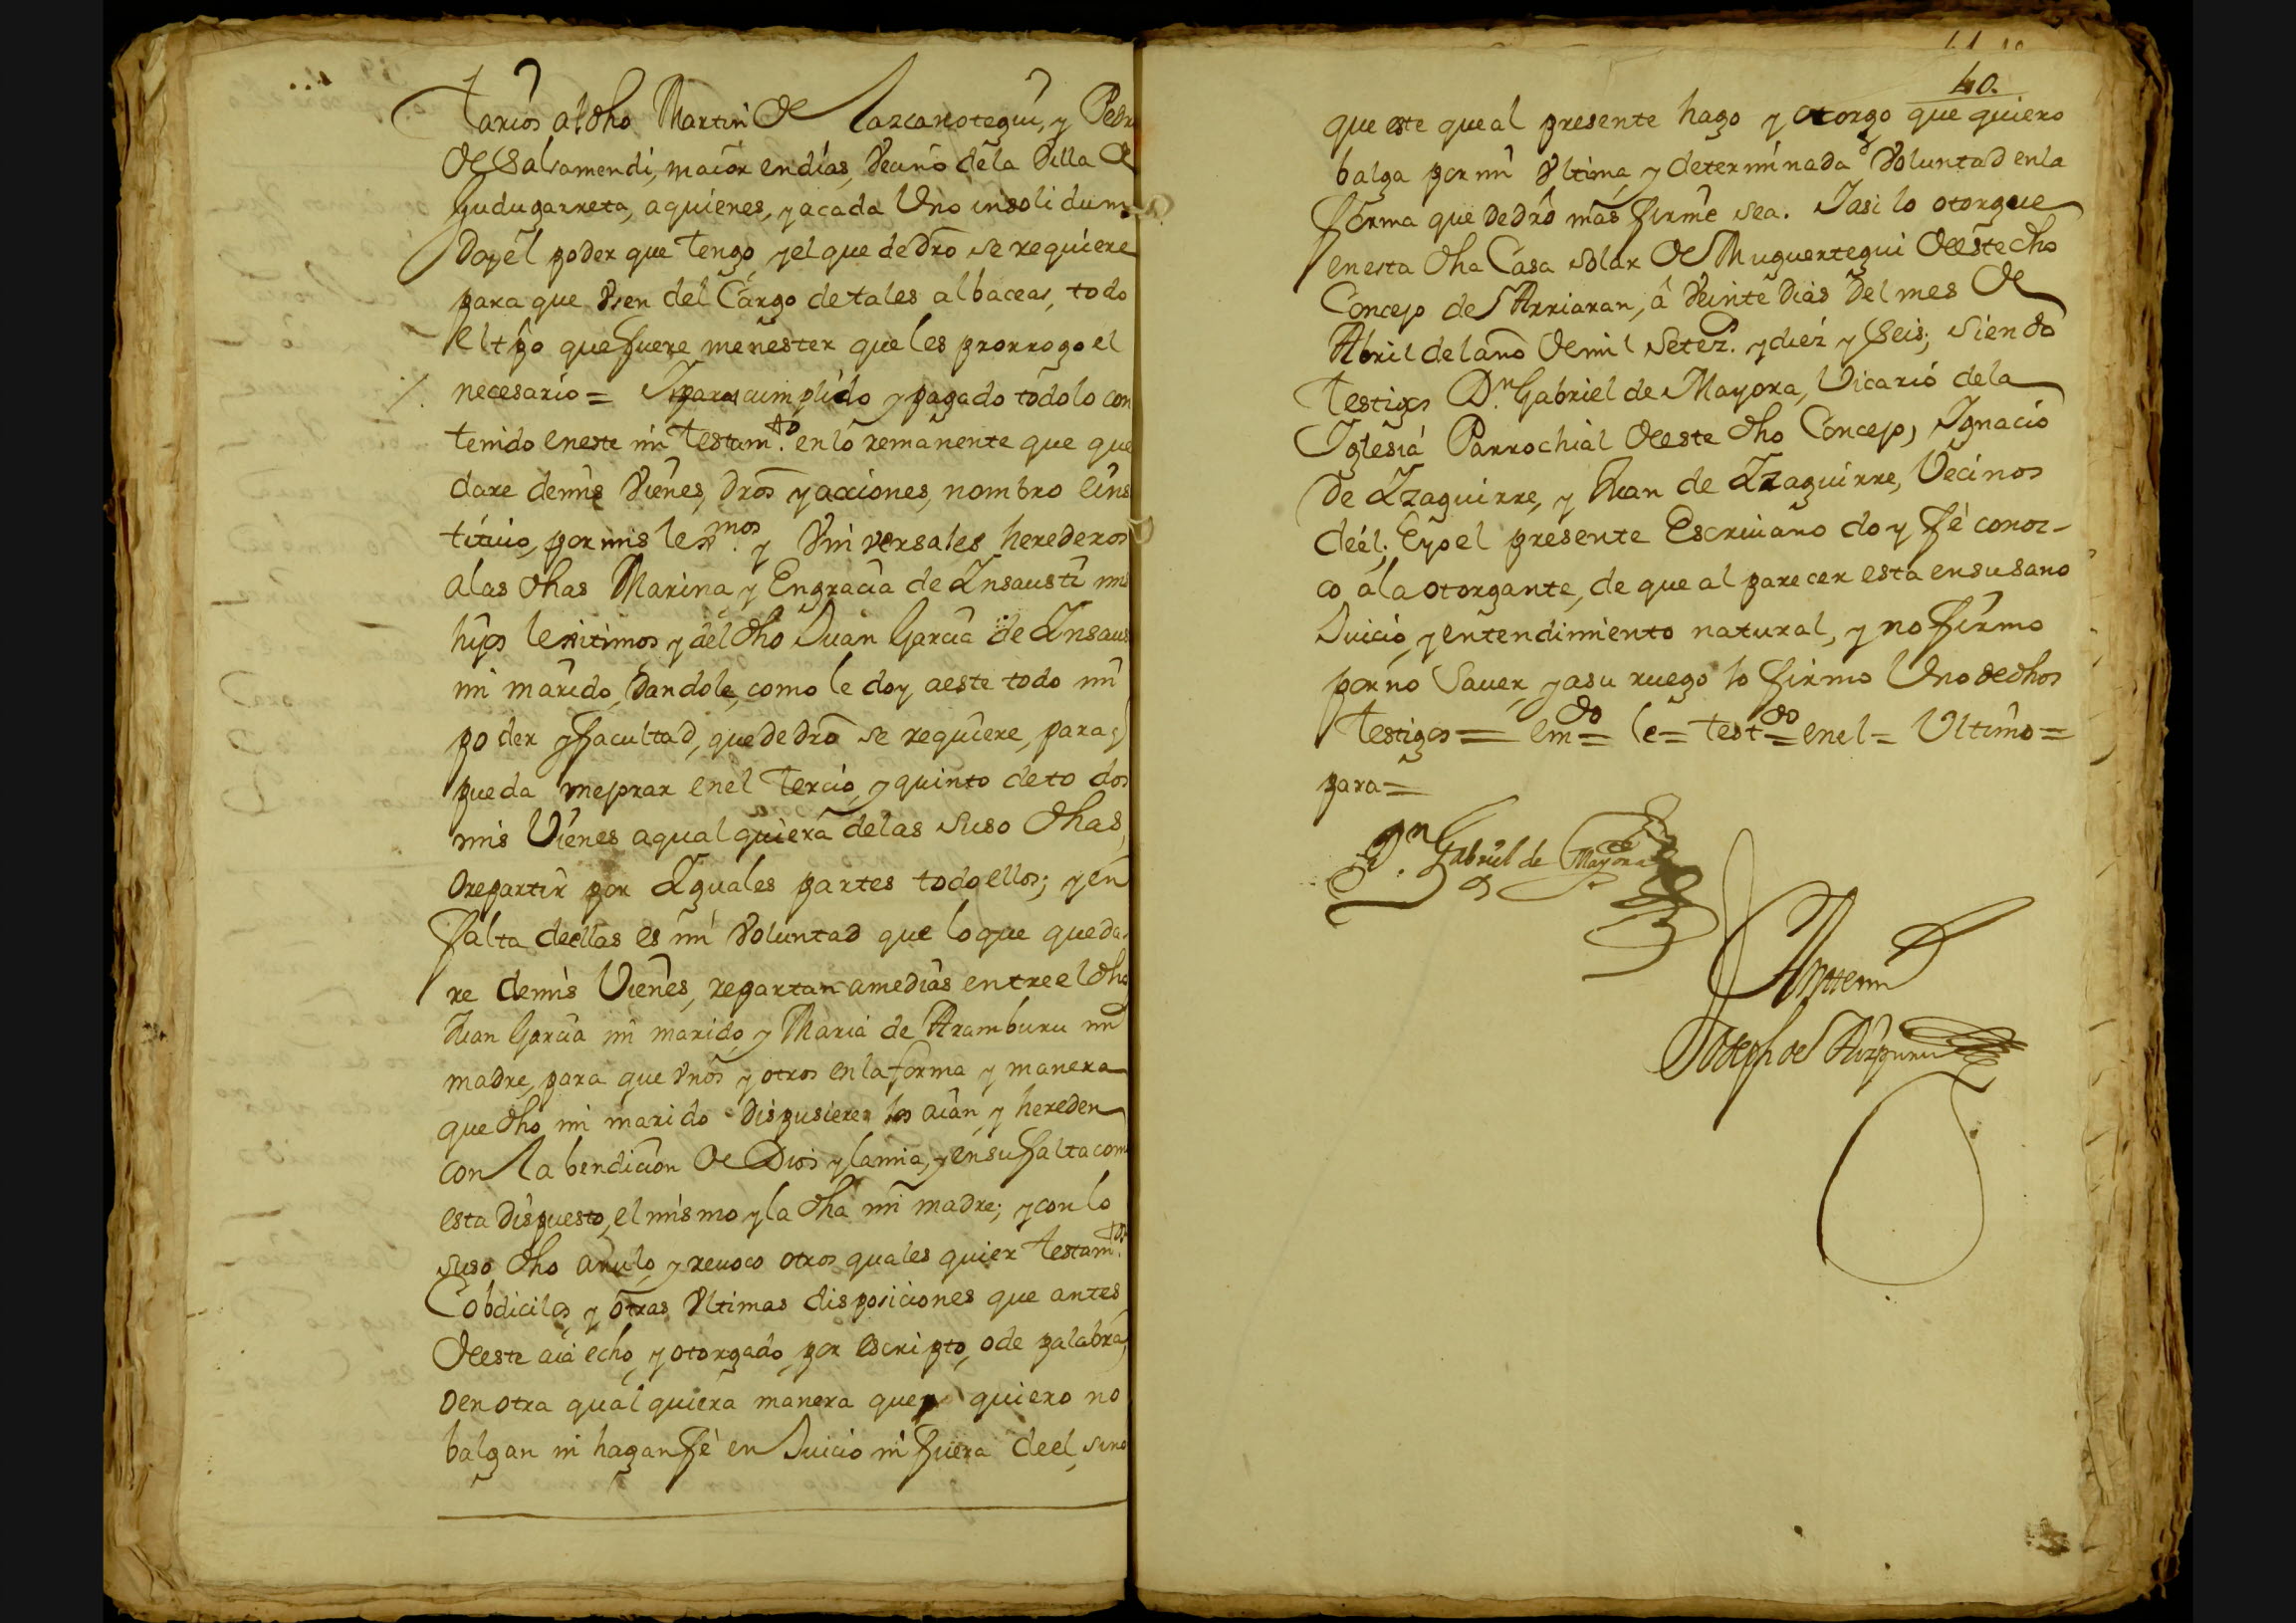 tarios al dho Martin de Lazcanotegui, y Pedro
de Salsamendi, maior en dias, Vecino de la Villa de
Gudugarreta, aquienes, y acada Uno insolidum
doy el poder que tengo y el que de dro se requiere
para que Vsen del Cargo de tales albaceas, todo
el tpo que fuere menester que les prorrogo el
necesario = Y para cumplido y pagado todo lo con
tenido en este mi testam.to en lo remanente que que
dare de mis Vienes, dros y acciones, nombro e ins
tituio, por mis lex.mos y Vniversales herederos
alas dhas Marina y Engracia de Insausti mis
hijos lexitimos y del dho Juan Garcia de Insaus
mi marido, dandole, como le doy aeste todo mi
poder y facultad, que de dro se requiere, para q
pueda mejorar en el tercio, y quinto de todos
mis Vienes a qualquiera de las suso dhas,
o repartir por Iguales partes todo ellos; y en
falta de ellas es mi Voluntad que lo que queda
re de mis Vienes, repartan amedias entre el dho
Juan Garcia mi marido, y Maria de Aramburu mi
madre, para que Vnos y otros en la forma y manera
que dho mi marido dispusieren los aian y hereden
con la bendicion de Dios y la mia, y en su falta com
esta dispuesto, el mismo y la dha mi madre; y con lo
suso dho anulo, y reuoco otros quales quier testam.tos
Cobdicilos, y otras Vltimas disposiciones que antes
de este aia echo, y otorgado, por escripto, o de palabra,
o en otra qualquiera manera que quiero no
balgan ni hagan fè en Juicio ni fuera de el, sino
40.
que este que al presente hago y otorgo que quiero
balga por mi Vltima, y determinada Voluntad en la
forma que de dro mas firme sea. Y asi lo otorgue
en esta dha Casa solar de Muguertegui de este dho
Concejo de Arriaran, â Veinte dias del mes de
Abril del año de mil setez. y diez y seis; siendo
testigos D.n Gabriel de Mayora, Vicario de la
Iglesia Parrochial de este dho Concejo, Ignacio
de Izaguirre, y Juan de Izaguirre, Vecinos
de él; E yo el presente Escriuano doy fè conoz-
co ala otorgante, de que al parecer esta en su sano
Juicio, y entendimiento natural, y no firmo
por no Sauer, y asu ruego lo firmo Uno de dhos
testigos = em.do = le = test.do = en el = Vltimo =
para =
D.n Gabriel de Mayora
Antemi
Joseph de Aizpuru